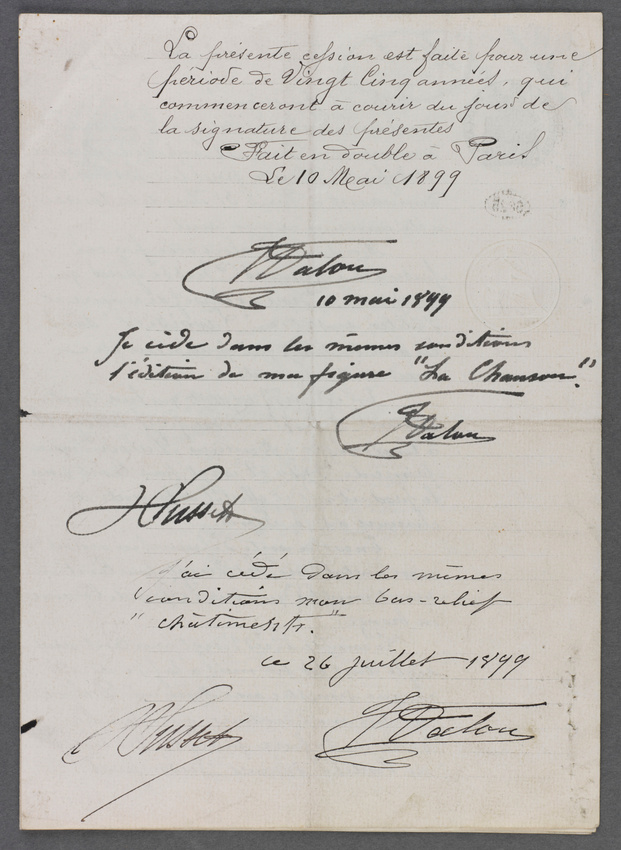 La présente cession est faite pour une
période de Vingt Cinq années, qui
commenceront à courir du jour de
la signature des présentes
Fait en double à Paris
Le 10 Mai 1899
Dalou
10 mai 1899
Je cède dans les mêmes conditions
l'édition de ma figure "La Chanson."
Dalou
Susse
j'ai cédé dans les mêmes
conditions mon bas-relief
"châtiments."
ce 26 juillet 1899
Susse
Dalou